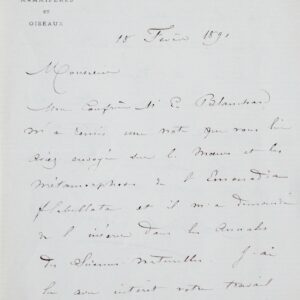 MAMMIFÈRES
ET
OISEAUX
15 Févr 1891
Monsieur
Mon Confrère Mr E. Blanchard
m'a remis une note que vous lui
avez envoyé sur les Mœurs et les
métamorphoses de l'
flabellata et il m'a demandé
de l'insérer dans les Annales
des Sciences naturelles. J'ai
lu avec intérêt votre travail